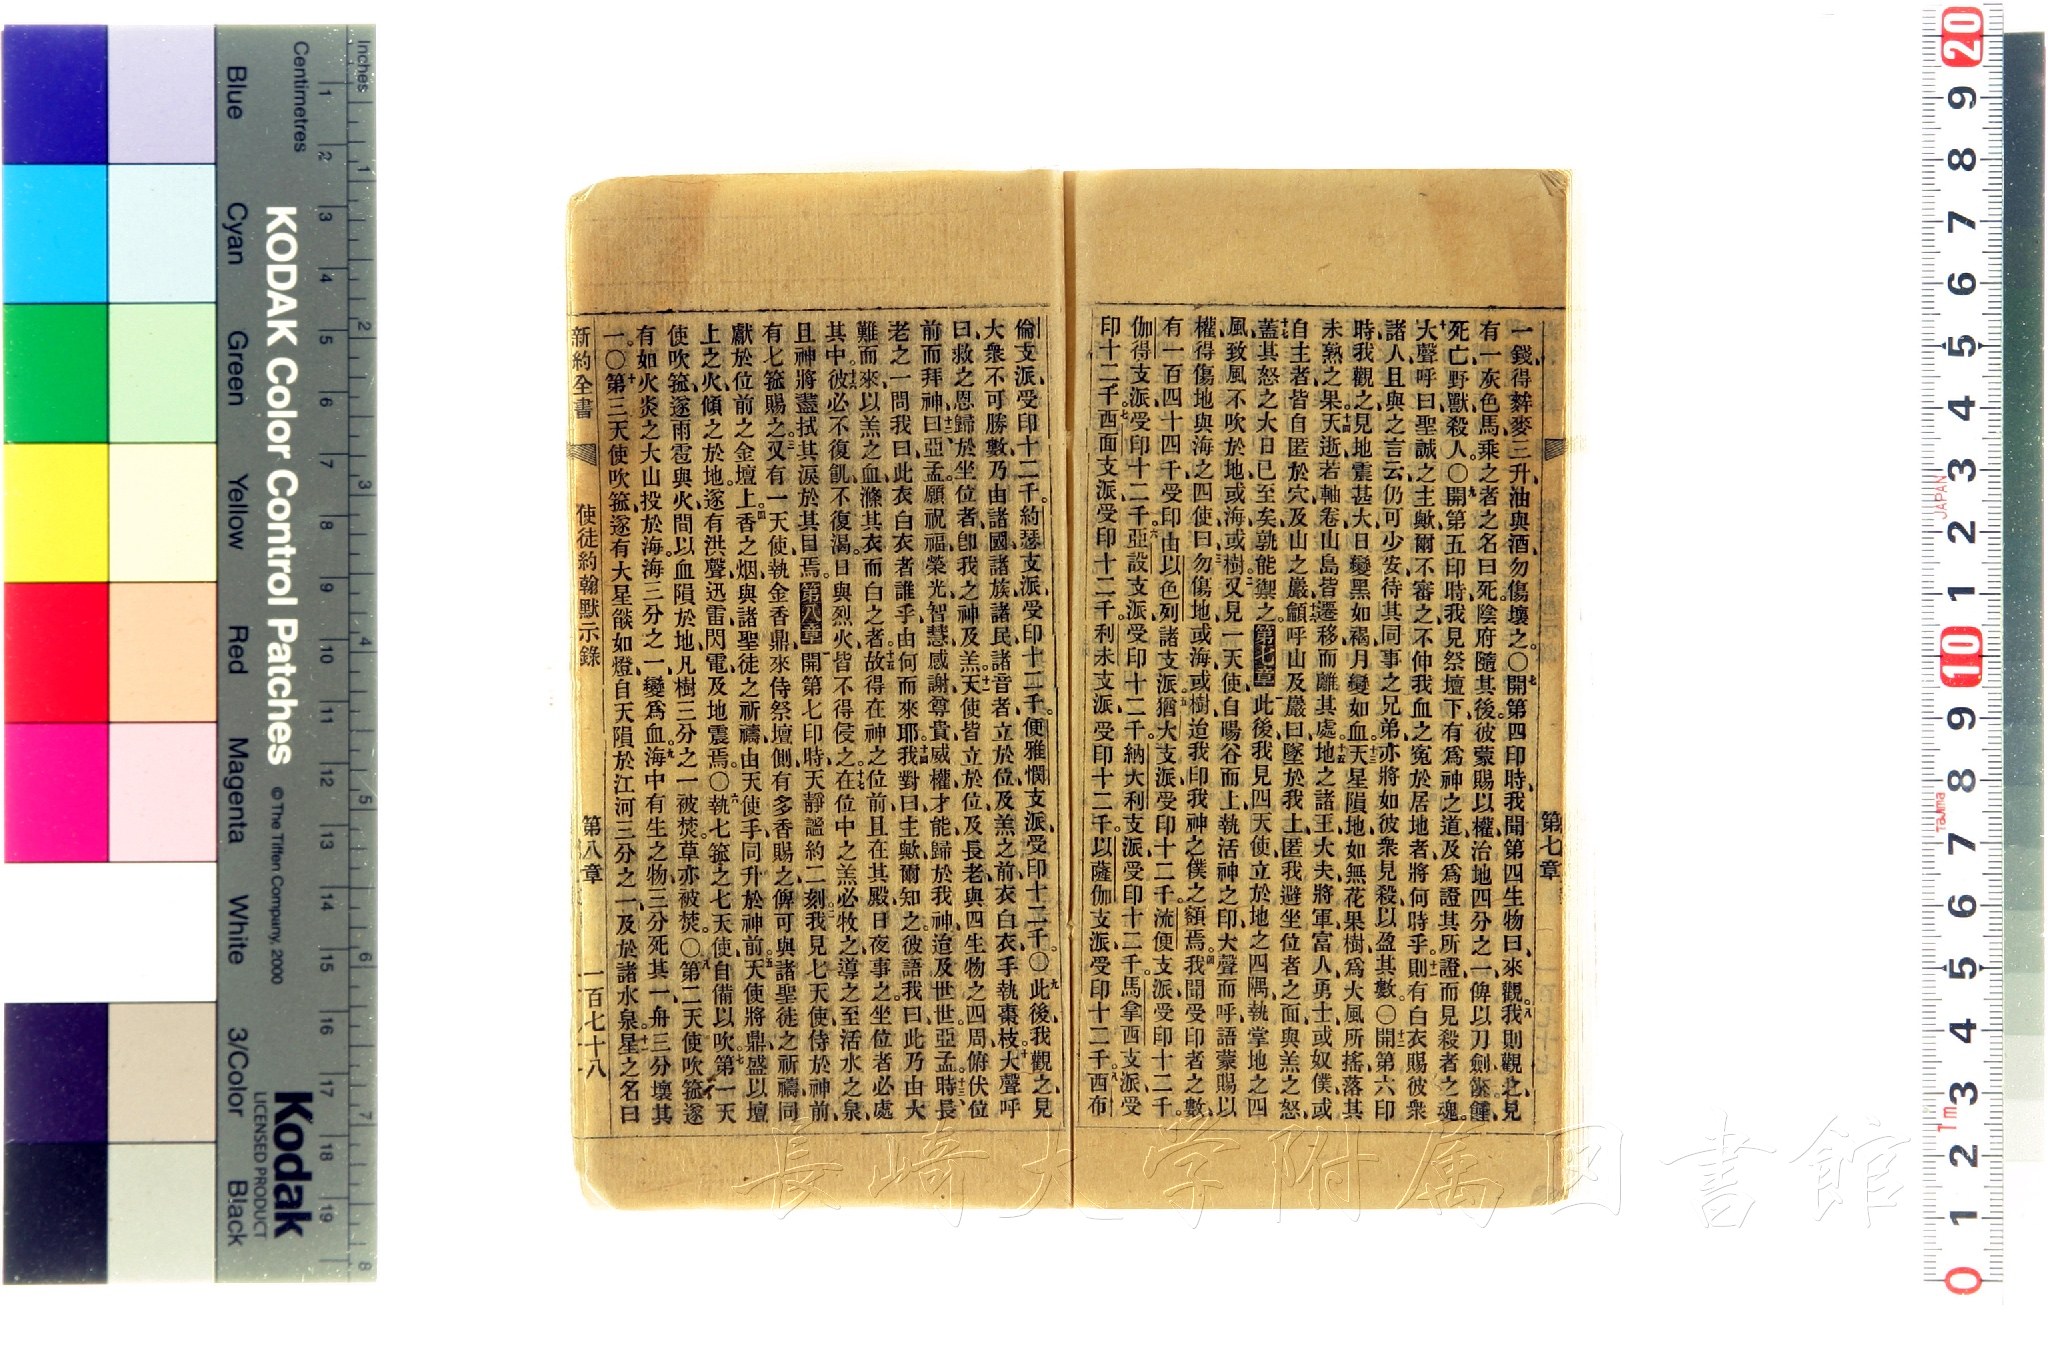 一錢得麰麥三升油與酒勿傷壞之〇七開第四印時我聞第四生物曰來觀八我則觀之見
有一灰色馬乘之者之名曰死陰府隨其後彼蒙賜以權治地四分之一俾以刀劍饑饉
死亡野獸殺人〇九開第五印時我見祭壇下有爲神之道及爲證其所證而見殺者之魂
十大聲呼曰聖誠之主歟爾不審之不伸我血之寃於居地者將何時乎十一則有白衣賜彼衆
諸人且與之言云仍可少安待其同事之兄弟亦將如彼衆見殺以盈其數〇十二開第六印
時我觀之見地震甚大日變黑如褐月變如血十三天星隕地如無花果樹爲大風所搖落其
未熟之果十四天逝若軸卷山島皆遷移而離其處十五地之諸王大夫將軍富人勇士或奴僕或
自主者皆自匿於穴及山之巖十六籲呼山及巖曰墜於我上匿我避坐位者之面與羔之怒
十七蓋其怒之大日已至矣孰能禦之第七章一此後我見四天使立於地之四隅執掌地之四
風致風不吹於地或海或樹二又見一天使自暘谷而上執活神之印大聲而呼語蒙賜以
權得傷地與海之四使三曰勿傷地或海或樹迨我印我神之僕之額焉四我聞受印者之數
有一百四十四千受印由以色列諸支派五猶大支派受印十二千流便支派受印十二千
伽得支派受印十二千六亞設支派受印十二千納大利支派受印十二千馬拿西支派受
印十二千七西面支派受印十二千利未支派受印十二千以薩伽支派受印十二千八西布
第七章
倫支派受印十二千約瑟支派受印十二千便雅憫支派受印十二千〇九此後我觀之見
大衆不可勝數乃由諸國諸族諸民諸音者立於位及羔之前衣白衣手執棗枝十大聲呼
曰救之恩歸於坐位者卽我之神及羔十一天使皆立於位及長老與四生物之四周俯伏位
前而拜神十二曰亞孟願祝福榮光智慧感謝尊貴威權才能歸於我神迨及世世亞孟十三時長
老之一問我曰此衣白衣者誰乎由何而來耶十四我對曰主歟爾知之彼語我曰此乃由大
難而來以羔之血滌其衣而白之者十五故得在神之位前且在其殿日夜事之坐位者必處
其中十六彼必不復飢不復渴日與烈火皆不得侵之十七在位中之羔必牧之導之至活水之泉
且神將盡拭其淚於其目焉第八章一開第七印時天靜謐約二刻二我見七天使侍於神前
有七箛賜之三又有一天使執金香鼎來侍祭壇側有多香賜之俾可與諸聖徒之祈禱同
獻於位前之金壇上四香之烟與諸聖徒之祈禱由天使手同升於神前五天使將鼎盛以壇
上之火傾之於地遂有洪聲迅雷閃電及地震焉〇六執七箛之七天使自備以吹七第一天
使吹箛遂雨雹與火間以血隕於地凡樹三分之一被焚草亦被焚〇八第二天使吹箛遂
有如火炎之大山投於海海三分之一變爲血九海中有生之物三分死其一舟三分壞其
一〇十第三天使吹箛遂有大星燄如燈自天隕於江河三分之一及於諸水泉十一星之名曰
新約全書 使徒約翰默示錄 第八章 一百七十八
Inches
Centimetres
Blue Cyan Green Yellow Red Magenta White 3/Color Black
KODAK Color Control Patches © The Tiffen Company, 2000
Kodak
LICENSED PRODUCT
1 2 3 4 5 6 7 8 9 10 11 12 13 14 15 16 17 18 19
1 2 3 4 5 6 7 8
20 9 8 7 6 5 4 3 2 1 10 9 8 7 6 5 4 3 2 1 0
JAPAN
Tajima
Tm
長崎大学附属図書館